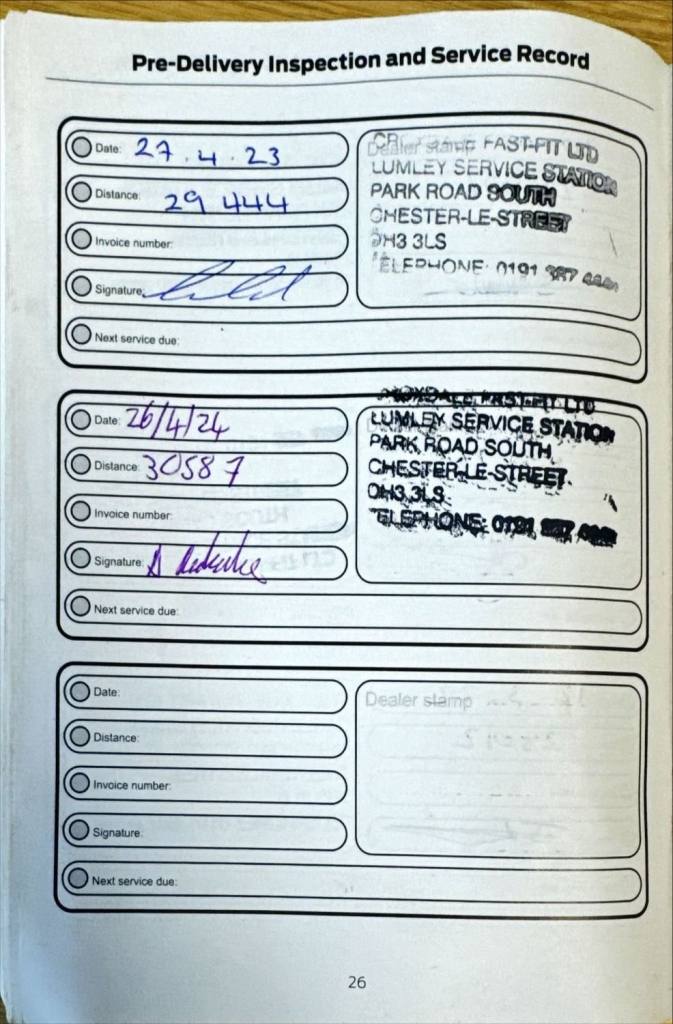 Pre-Delivery Inspection and Service Record
Date: 27.4.23
Distance: 29 444
Invoice number:
Signature:
Next service due:
Dealer stamp FAST-FIT LTD
LUMLEY SERVICE STATION
PARK ROAD SOUTH
CHESTER-LE-STREET
DH3 3LS
TELEPHONE: 0191
Date: 26/4/24
Distance: 30587
Invoice number:
Signature:
Next service due:
FAST-FIT LTD
LUMLEY SERVICE STATION
PARK ROAD SOUTH
CHESTER-LE-STREET
DH3 3LS
TELEPHONE: 0191
Date:
Distance:
Invoice number:
Signature:
Next service due:
Dealer stamp
26